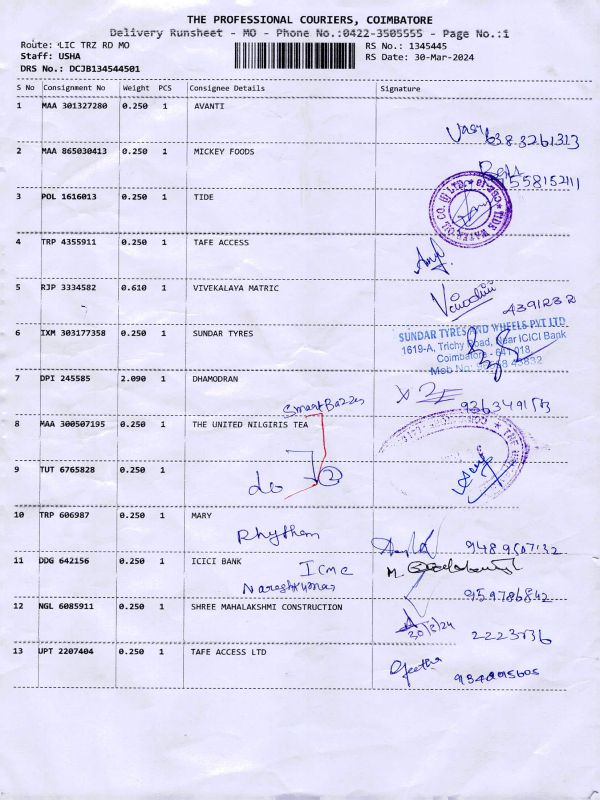 THE PROFESSIONAL COURIERS, COIMBATORE
Delivery Runsheet - MO - Phone No.:0422-3505555 - Page No.:1
Route: LIC TRZ RD MO RS No.: 1345445
Staff: USHA RS Date: 30-Mar-2024
DRS No.: DCJB134544501
S No Consignment No Weight PCS Consignee Details Signature
1 MAA 301327280 0.250 1 AVANTI
6383261313
2 MAA 865030413 0.250 1 MICKEY FOODS
3 POL 1616013 0.250 1 TIDE
4 TRP 4355911 0.250 1 TAFE ACCESS
5 RJP 3334582 0.610 1 VIVEKALAYA MATRIC
4391232
6 IXM 303177358 0.250 1 SUNDAR TYRES
SUNDAR TYRES AND WHEELS PVT LTD
1619-A, Trichy Road, Near ICICI Bank
Coimbatore - 641 018.
7 DPI 245585 2.090 1 DHAMODRAN
Smart Bazzer
8 MAA 300507195 0.250 1 THE UNITED NILGIRIS TEA
9 TUT 6765828 0.250 1
do 2
10 TRP 606987 0.250 1 MARY
Rhythem
11 DDG 642156 0.250 1 ICICI BANK
ICMC
Nareshkumar
959786842
12 NGL 6085911 0.250 1 SHREE MAHALAKSHMI CONSTRUCTION
13 UPT 2207404 0.250 1 TAFE ACCESS LTD
Geetha